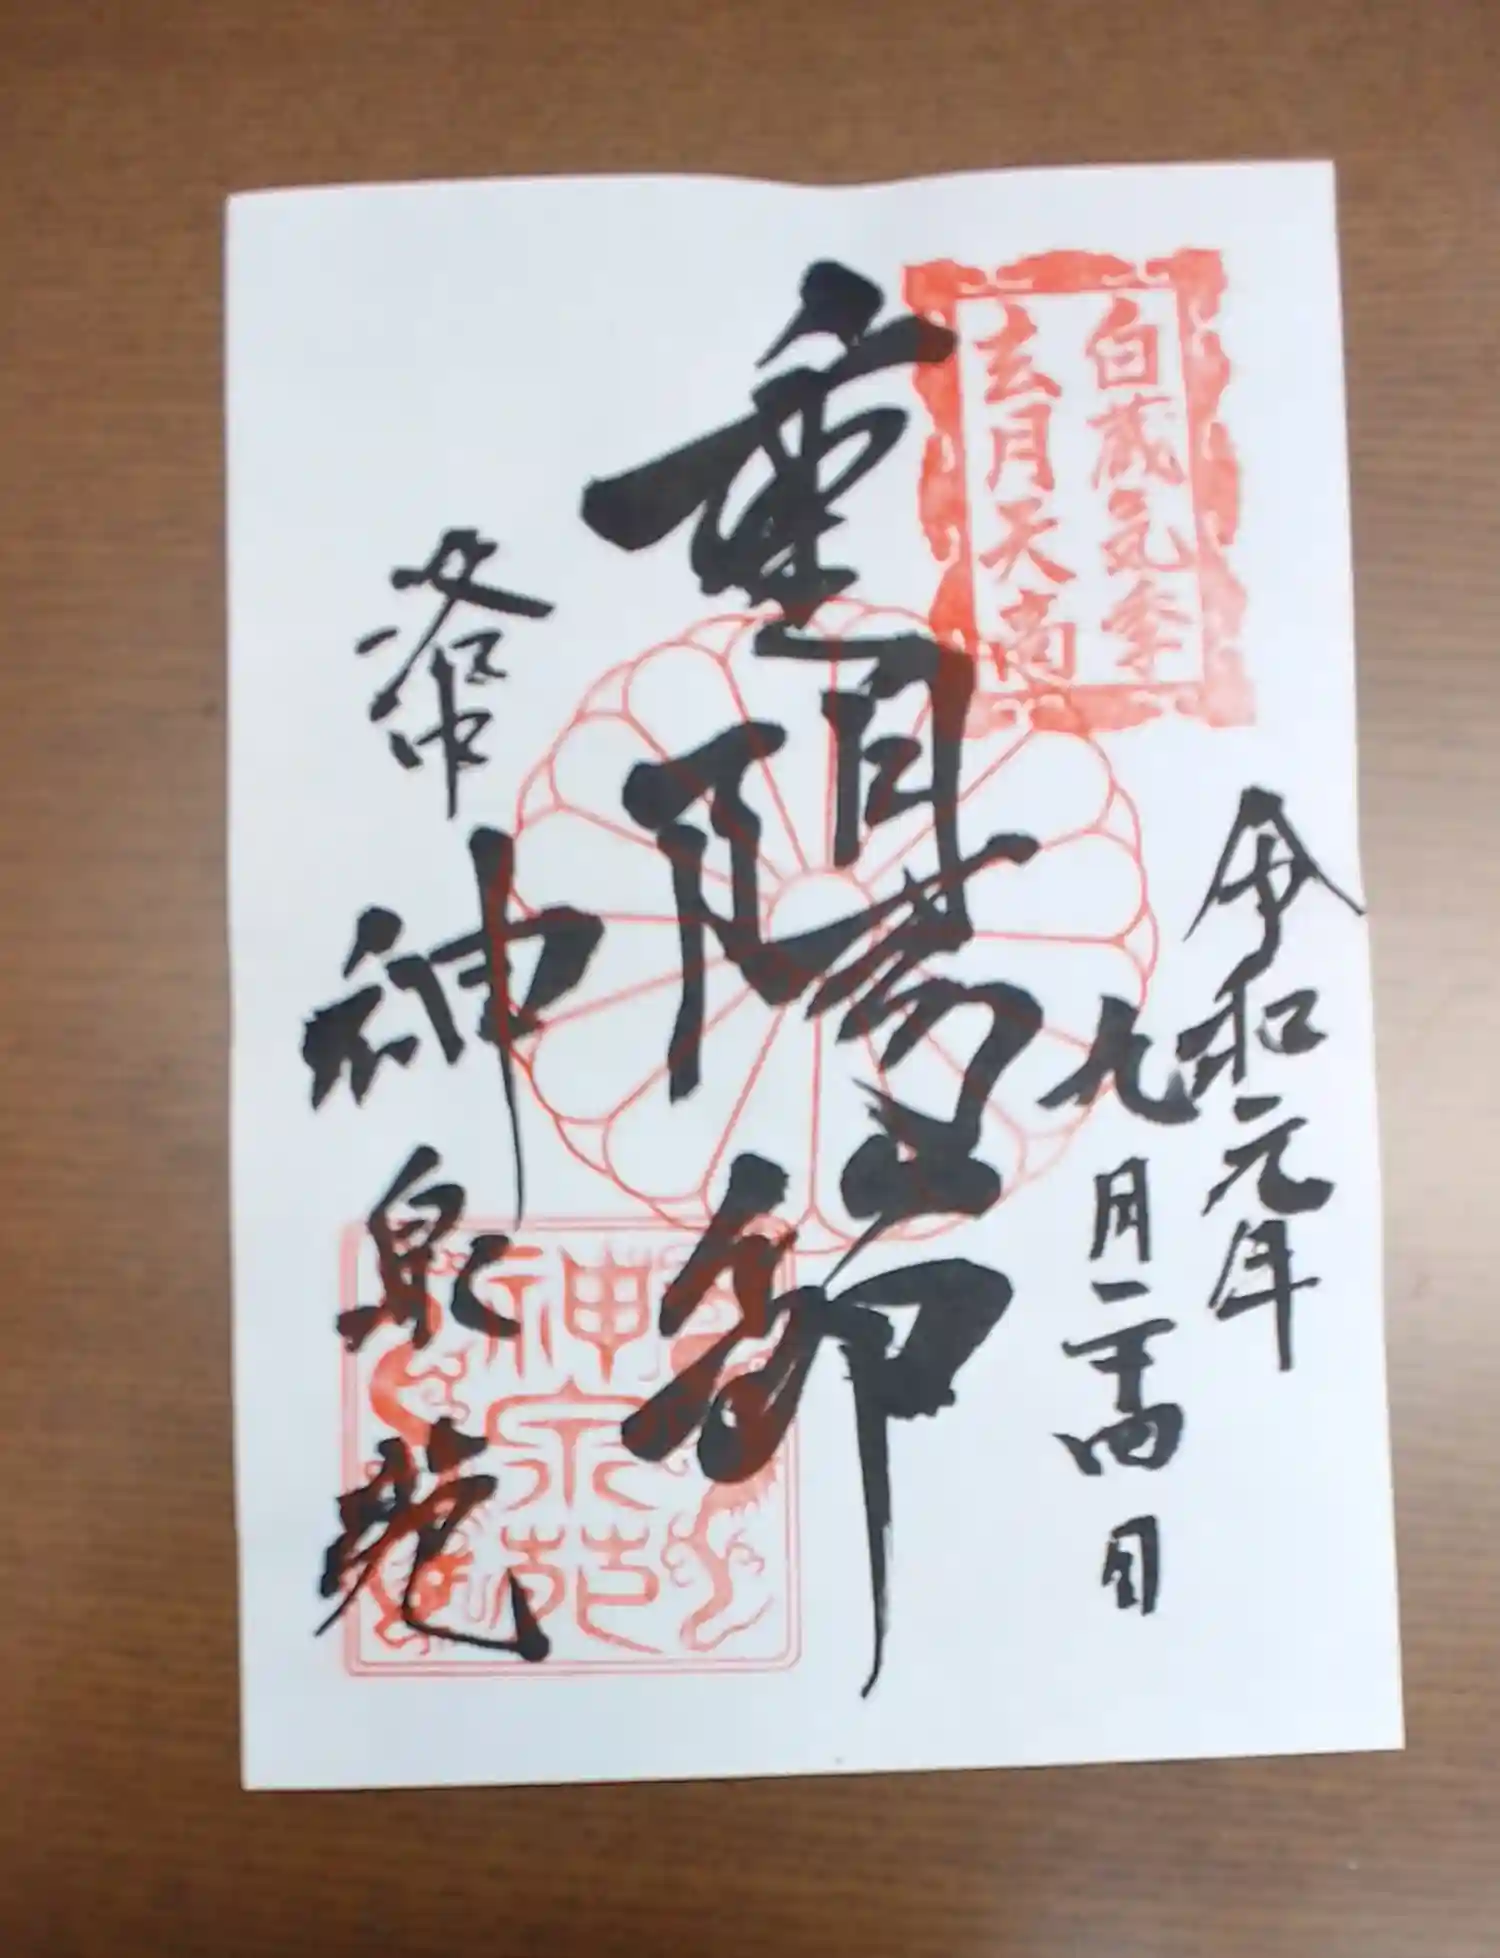 白蔵気季
玄月天高
令和元年
九月二十四日
重陽節
洛中
神泉苑
神泉苑